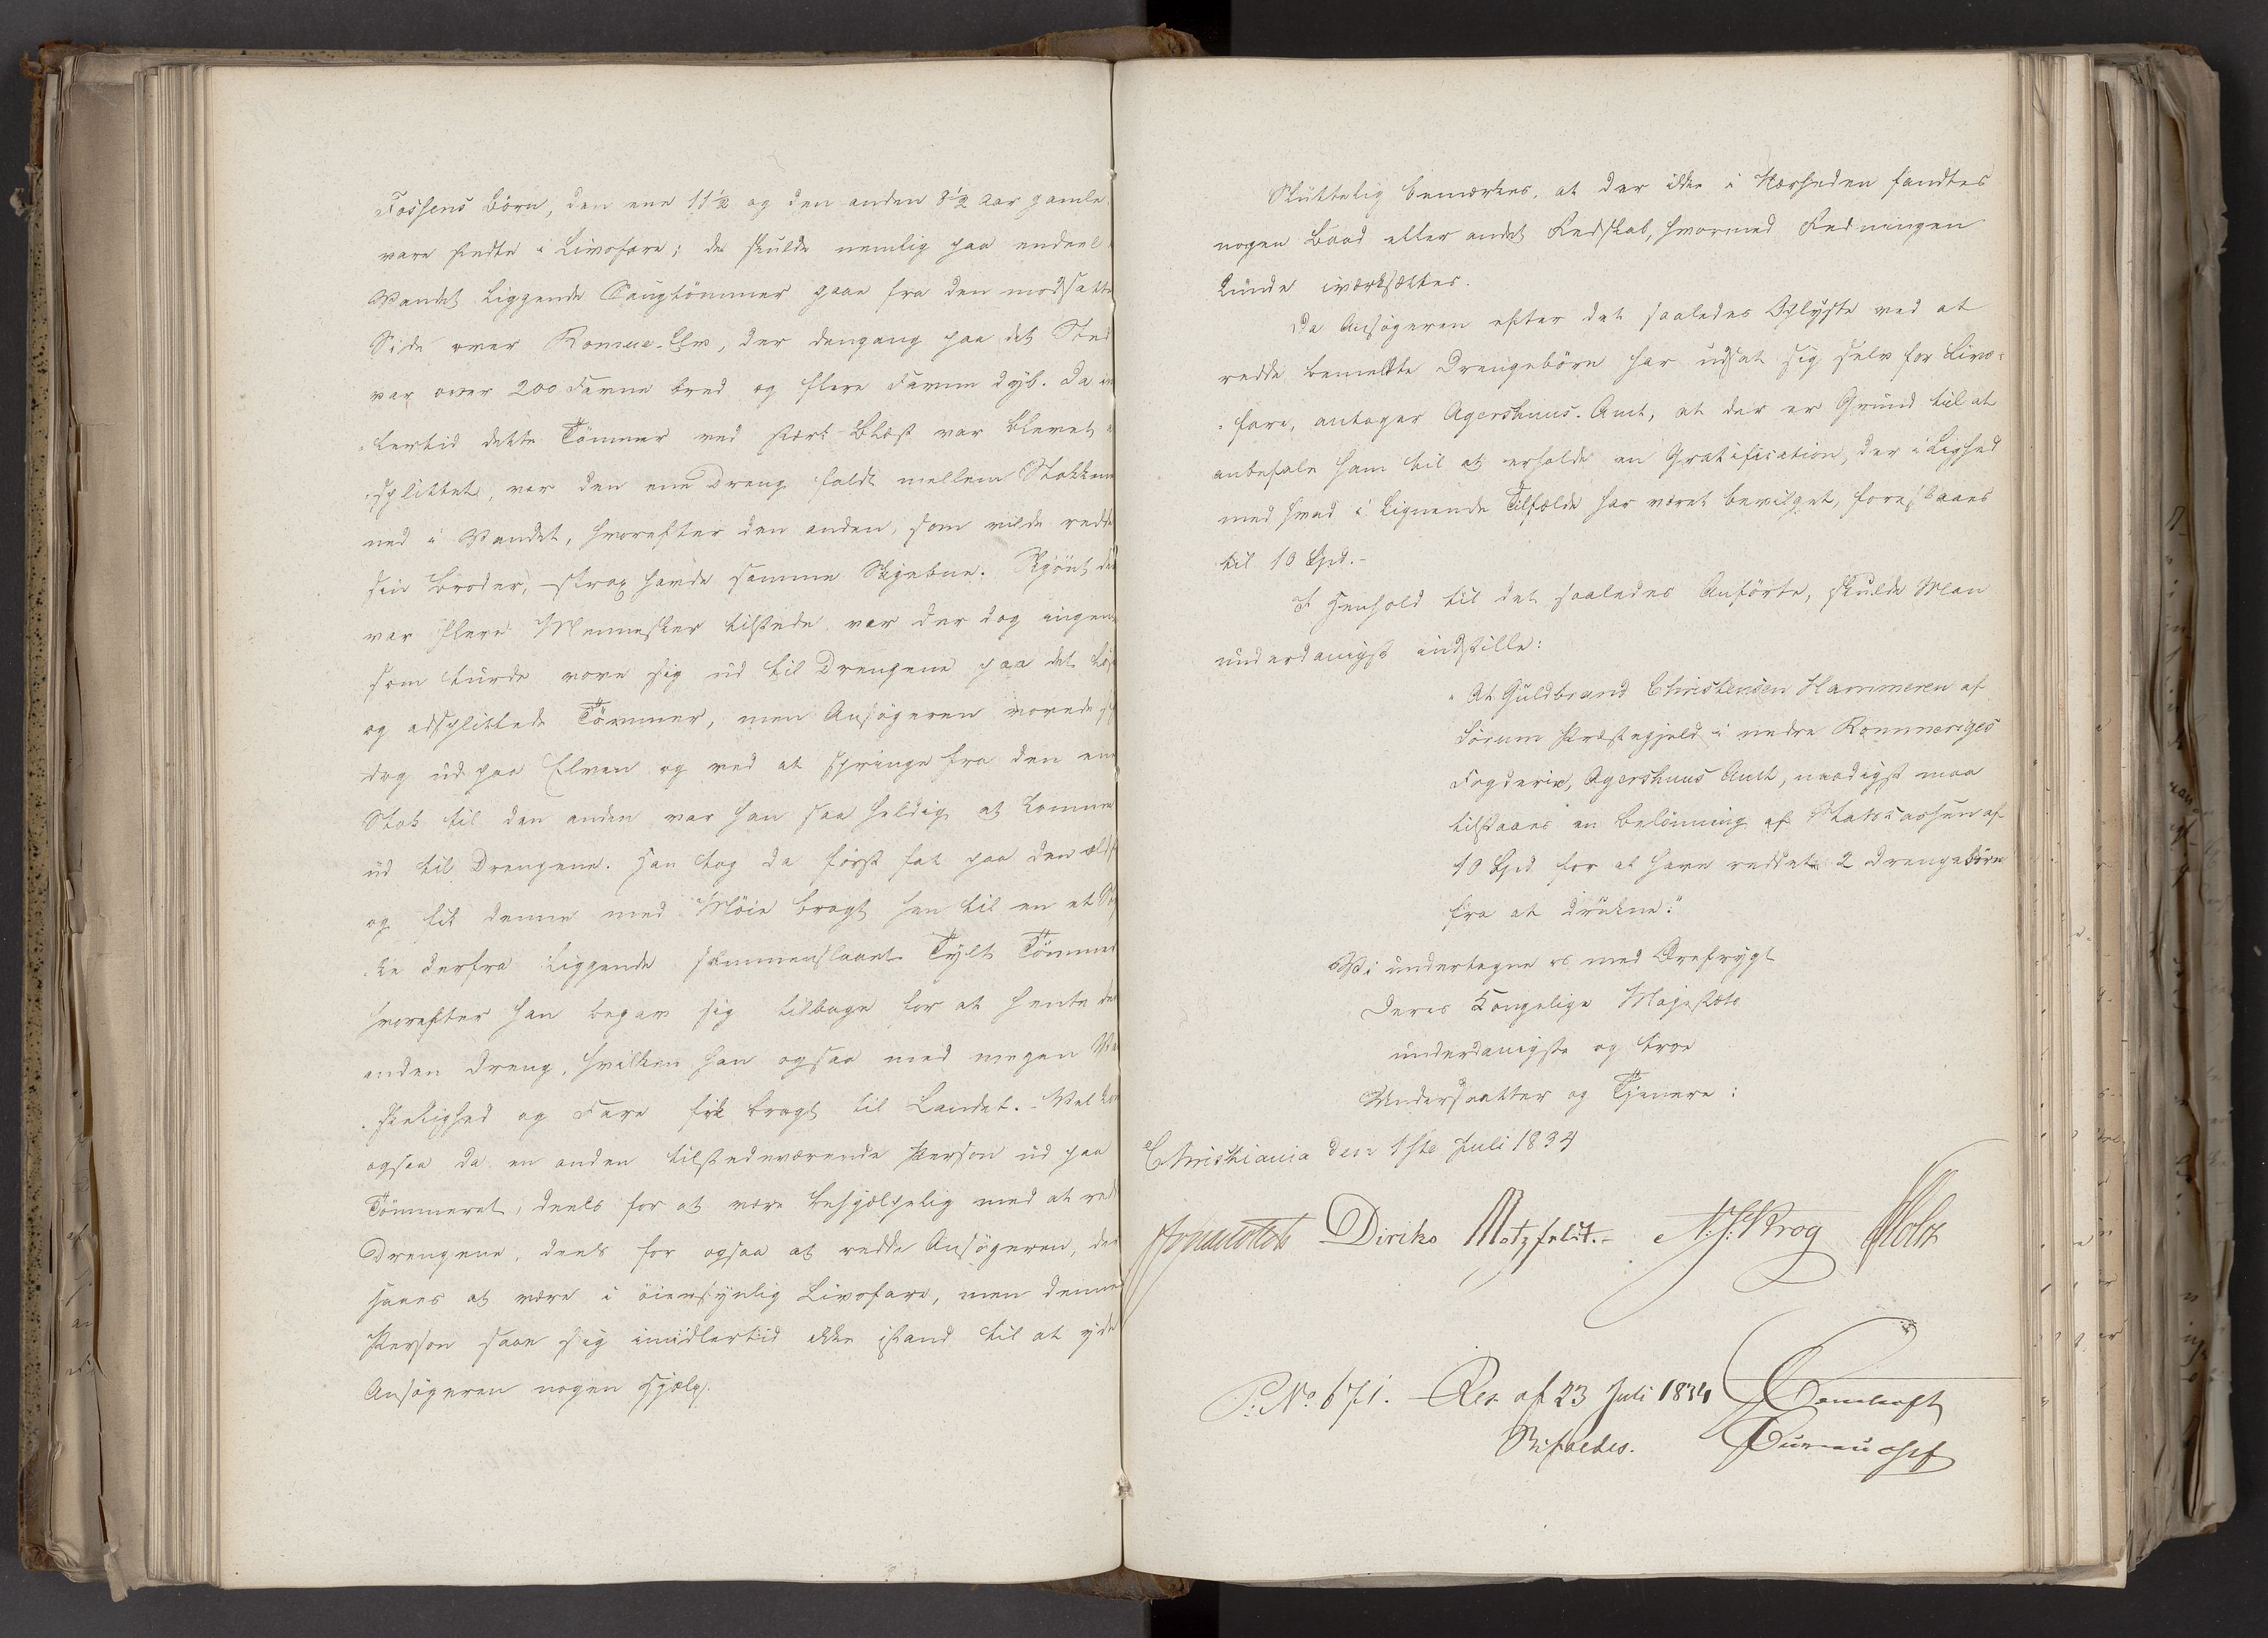 Fossens Börn, den ene 11½ og den anden 8½ Aar gamle
vare stedte i Livsfare; de skulde nemlig paa endeel i
Vandet liggende Saugtömmer gaae fra den modsatte
Side over Romue-Elv, der dengang paa det Sted
var over 200 Favne bred og flere Favne dyb. Da im
lertid dette Tömmer ved stærk Blæst var blevet a
splittet, var den ene Dreng faldt mellem Stokkene
ned i Vandet, hvorefter den anden, som vilde redde
sin Broder, strax havde samme Skjebne. Skjönt der
var flere Mennesker tilstede var der dog ingen
som turde vove sig ud til Drengene paa det lös
og adsplittede Tömmer, men Ansögeren vovede sig
dog ud paa Elven og ved at springe fra den ene
Stok til den anden var han saa heldig at komme
ud til Drengene. Han tog da först fat paa den ældst
og fik denne med Möie bragt hen til en et St
ke derfra liggende sammenslaaet Tylt Tömmer
hvorefter han begav sig tilbage for at hente den
anden Dreng, hvilken han ogsaa med megen Va
skelighed og Fare fik bragt til Landet. - Vel kom
ogsaa da en anden tilstedeværende Person ud paa
Tömmeret, deels for at være behjælpelig med at red
Drengene, deels for ogsaa at redde Ansögeren, der
saaes at være i öiensynlig Livsfare, men denne
Person saae sig imidlertid ikke istand til at yde
Ansögeren nogen Hjælp.
Sluttelig bemærkes, at der ikke i Nærheden fandtes
nogen Baad eller andet Redskab, hvormed Redningen
kunde iværksættes.
Da Ansögeren efter det saaledes Oplyste ved at
redde bemeldte Drengebörn har udsat sig selv for Livs-
fare, antager Agershuus-Amt, at der er Grund til at
anbefale ham til at erholde en Gratification, der i Lighed
med hvad i lignende Tilfælde har været bevilget, foreslaaes
til 10 Spd.-
I Henhold til det saaledes Anförte, skulde Man
underdanigst indstille:
"At Guldbrand Christensen Hammeren af
Sörum Præstegjeld i nedre Rommeriges
Fogderie, Agershuus Amt, naadigst maa
tilstaaes en Belönning af Statscassen af
10 Spd for at have reddet 2 Drengebörn
fra at drukne."
Vi undertegne os med Ærefrygt
Deres Kongelige Majestæts
underdanigste og troe
Undersaatter og Tjenere:
Christiania den 1ste Juli 1834
Diriks Motzfeldt.- N. J. Krog Holst
P: No 671. Res af 23 Juli 1834
Bifaldes. Bureauchef